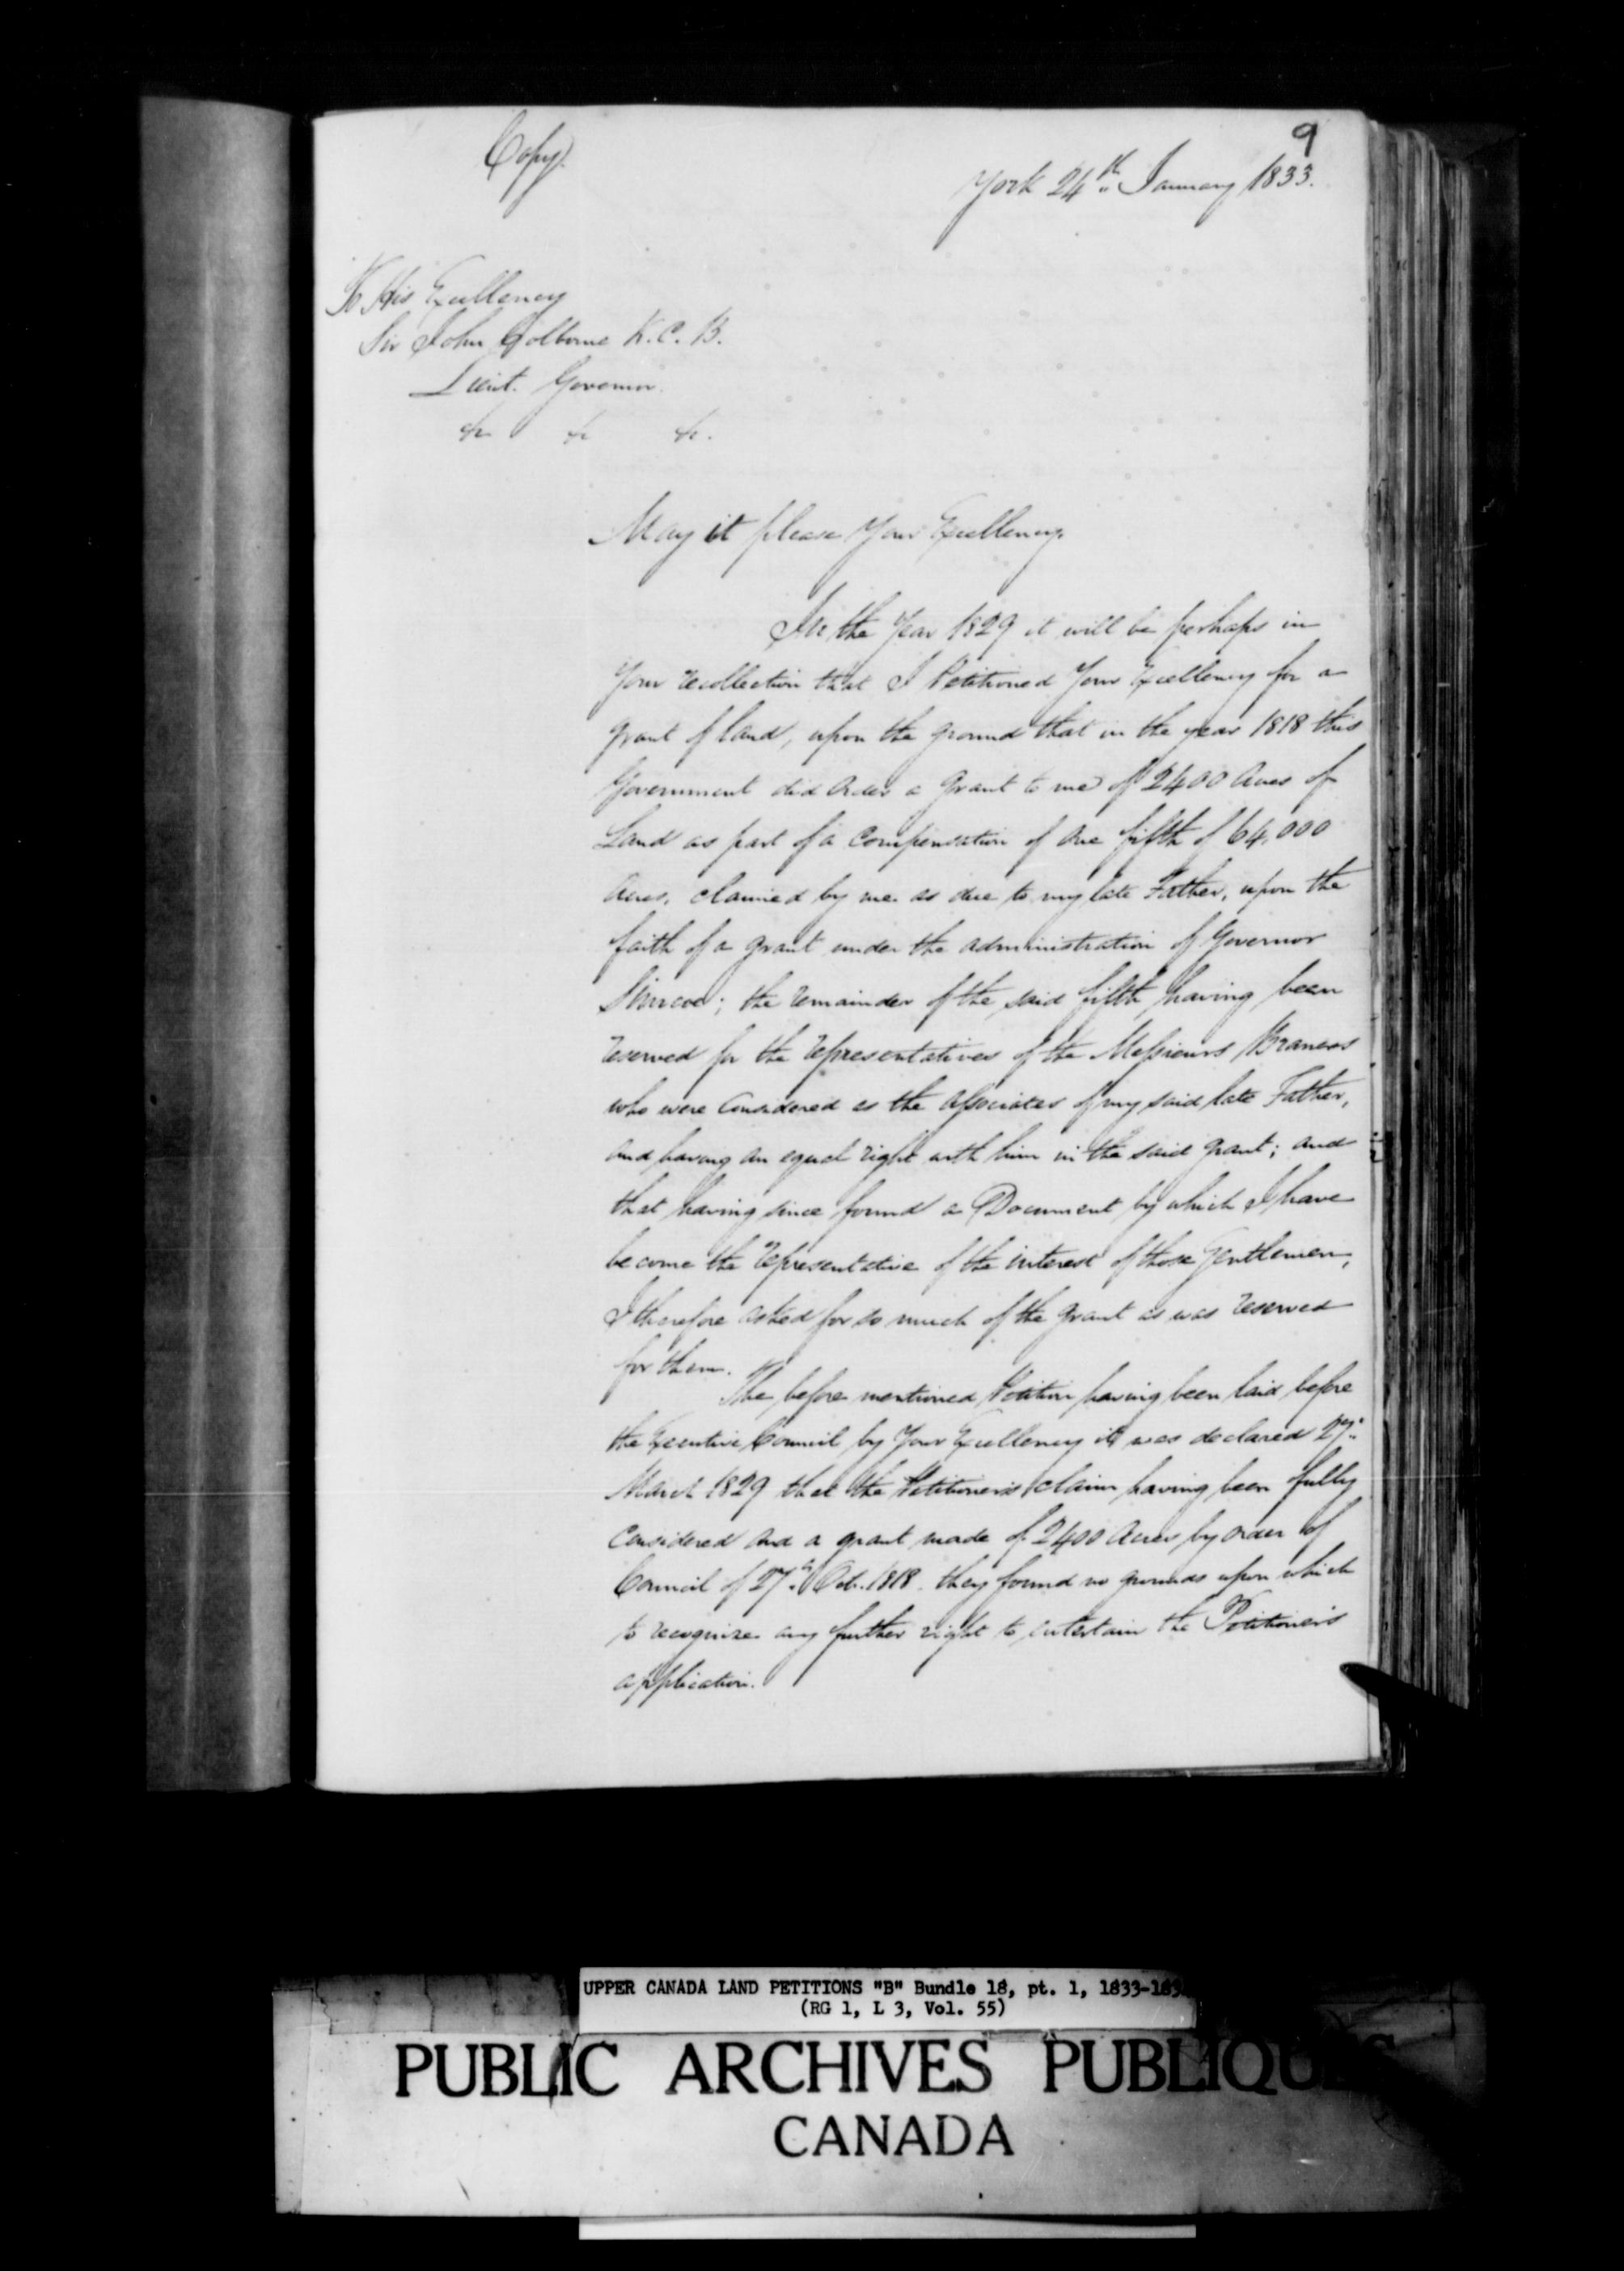 9
Copy.
York 24th January 1833.
To His Excellency
Sir John Colborne K.C.B.
Lieut. Governor.
&c &c &c.
May it please Your Excellency.
In the Year 1829 it will be perhaps in
Your recollection that I Petitioned Your Excellency for a
grant of land, upon the ground that in the year 1818 this
Government did order a grant to me of 2400 Acres of
Land as part of a Compensation of one fifth of 64,000
Acres, claimed by me as due to my late Father, upon the
faith of a grant under the administration of Governor
Simcoe; the remainder of the said fifth having been
reserved for the representatives of the Messieurs
who were Considered as the associates of my said late Father,
and having an equal right with him in the said grant; and
that having since found a Document by which I have
become the representative of the interest of those Gentlemen,
I therefore asked for so much of the grant as was reserved
for them.
The before mentioned Petition having been laid before
the Executive Council by Your Excellency it was declared 27th
March 1829 that the Petitioner's claim having been fully
Considered and a grant made of 2400 Acres by order of
Council of 27th Oct. 1818. they found no grounds upon which
to recognize any further right to entertain the Petitioner's
application.
UPPER CANADA LAND PETITIONS "B" Bundle 18, pt. 1, 1833-183
(RG 1, L 3, Vol. 55)
PUBLIC ARCHIVES PUBLIQUES
CANADA